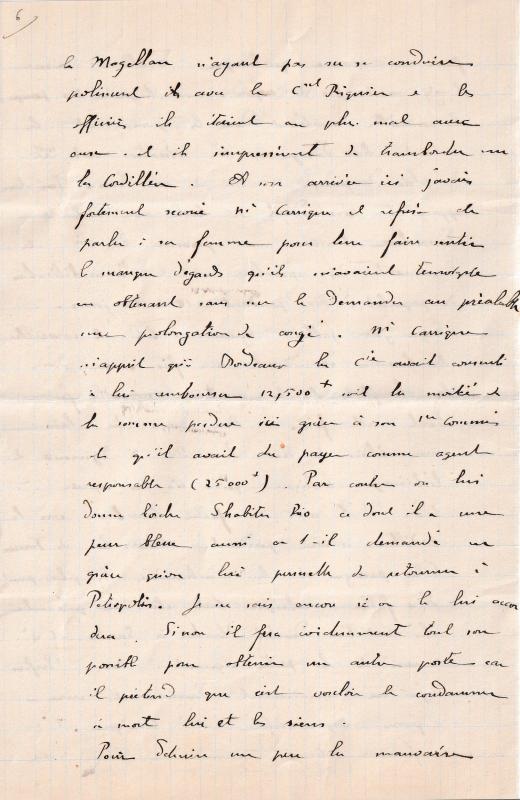 6
le Magellan n'ayant pas su se conduire
poliment ils avec le Cnel Riquier e les
officiers ils étaient au plus mal avec
eux. et ils s'empressèrent de transborder sur
la Cordillère. A son arrivée ici j'avais
fortement secoué Mr Carrique et refusé de
parler à sa femme pour leur faire sentir
le manque d'égards qu'ils m'avaient témoigné
en obtenant sans me le demander au préalable
une prolongation de congé. Mr Carrique
m'apprit qu'à Bordeaux la Cie avait consenti
à lui rembourser 12,500 soit la moitié de
la somme perdue ici grâce à son 1er Commis
et qu'il avait du payer comme agent
responsable (25000). Par contre on lui
donne l'ordre d'habiter Rio ce dont il a une
peur bleue aussi a-t-il demandé en
grâce qu'on lui permette de retourner à
Petropolis. Je ne sais encore si on le lui accor
dera. Sinon il fera évidemment tout son
possible pour obtenir un autre poste car
il prétend que c'est vouloir le condamner
à mort lui et les siens.
Pour détruire un peu la mauvaise